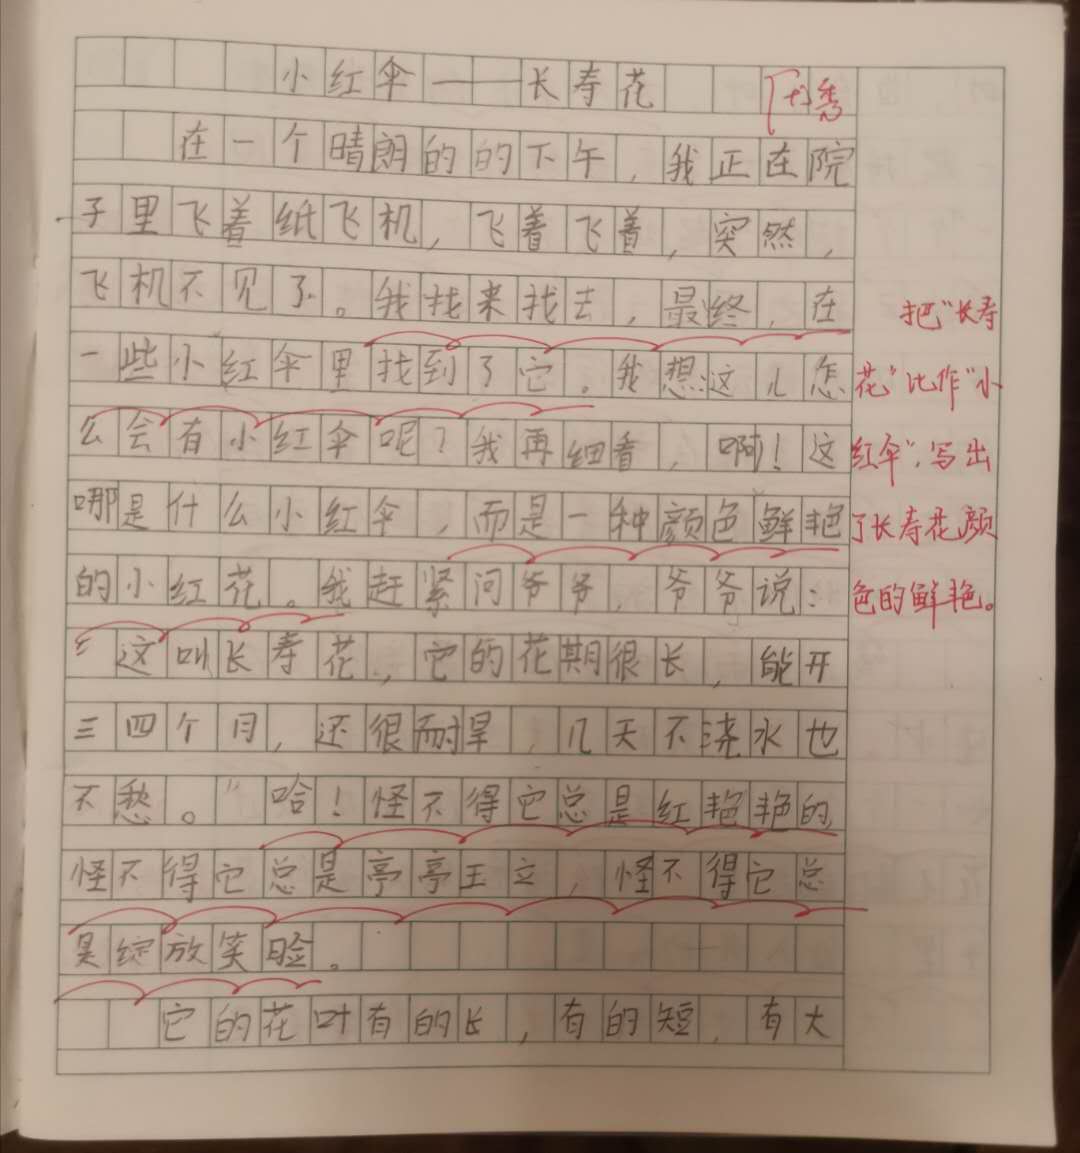 小红伞——长寿花
优秀
在一个晴朗的的下午，我正在院
子里飞着纸飞机，飞着飞着，突然，
飞机不见了。我找来找去，最终，在
一些小红伞里找到了它。我想:这儿怎
么会有小红伞呢？我再细看，啊！这
哪是什么小红伞，而是一种颜色鲜艳
的小红花。我赶紧问爷爷，爷爷说：
“这叫长寿花，它的花期很长，能开
三四个月，还很耐旱，几天不浇水也
不愁。”哈！怪不得它总是红艳艳的
怪不得它总是亭亭玉立，怪不得它总
是绽放笑脸。
它的花叶有的长，有的短，有大
把“长寿
花”比作“小
红伞”，写出
了长寿花颜
色的鲜艳。